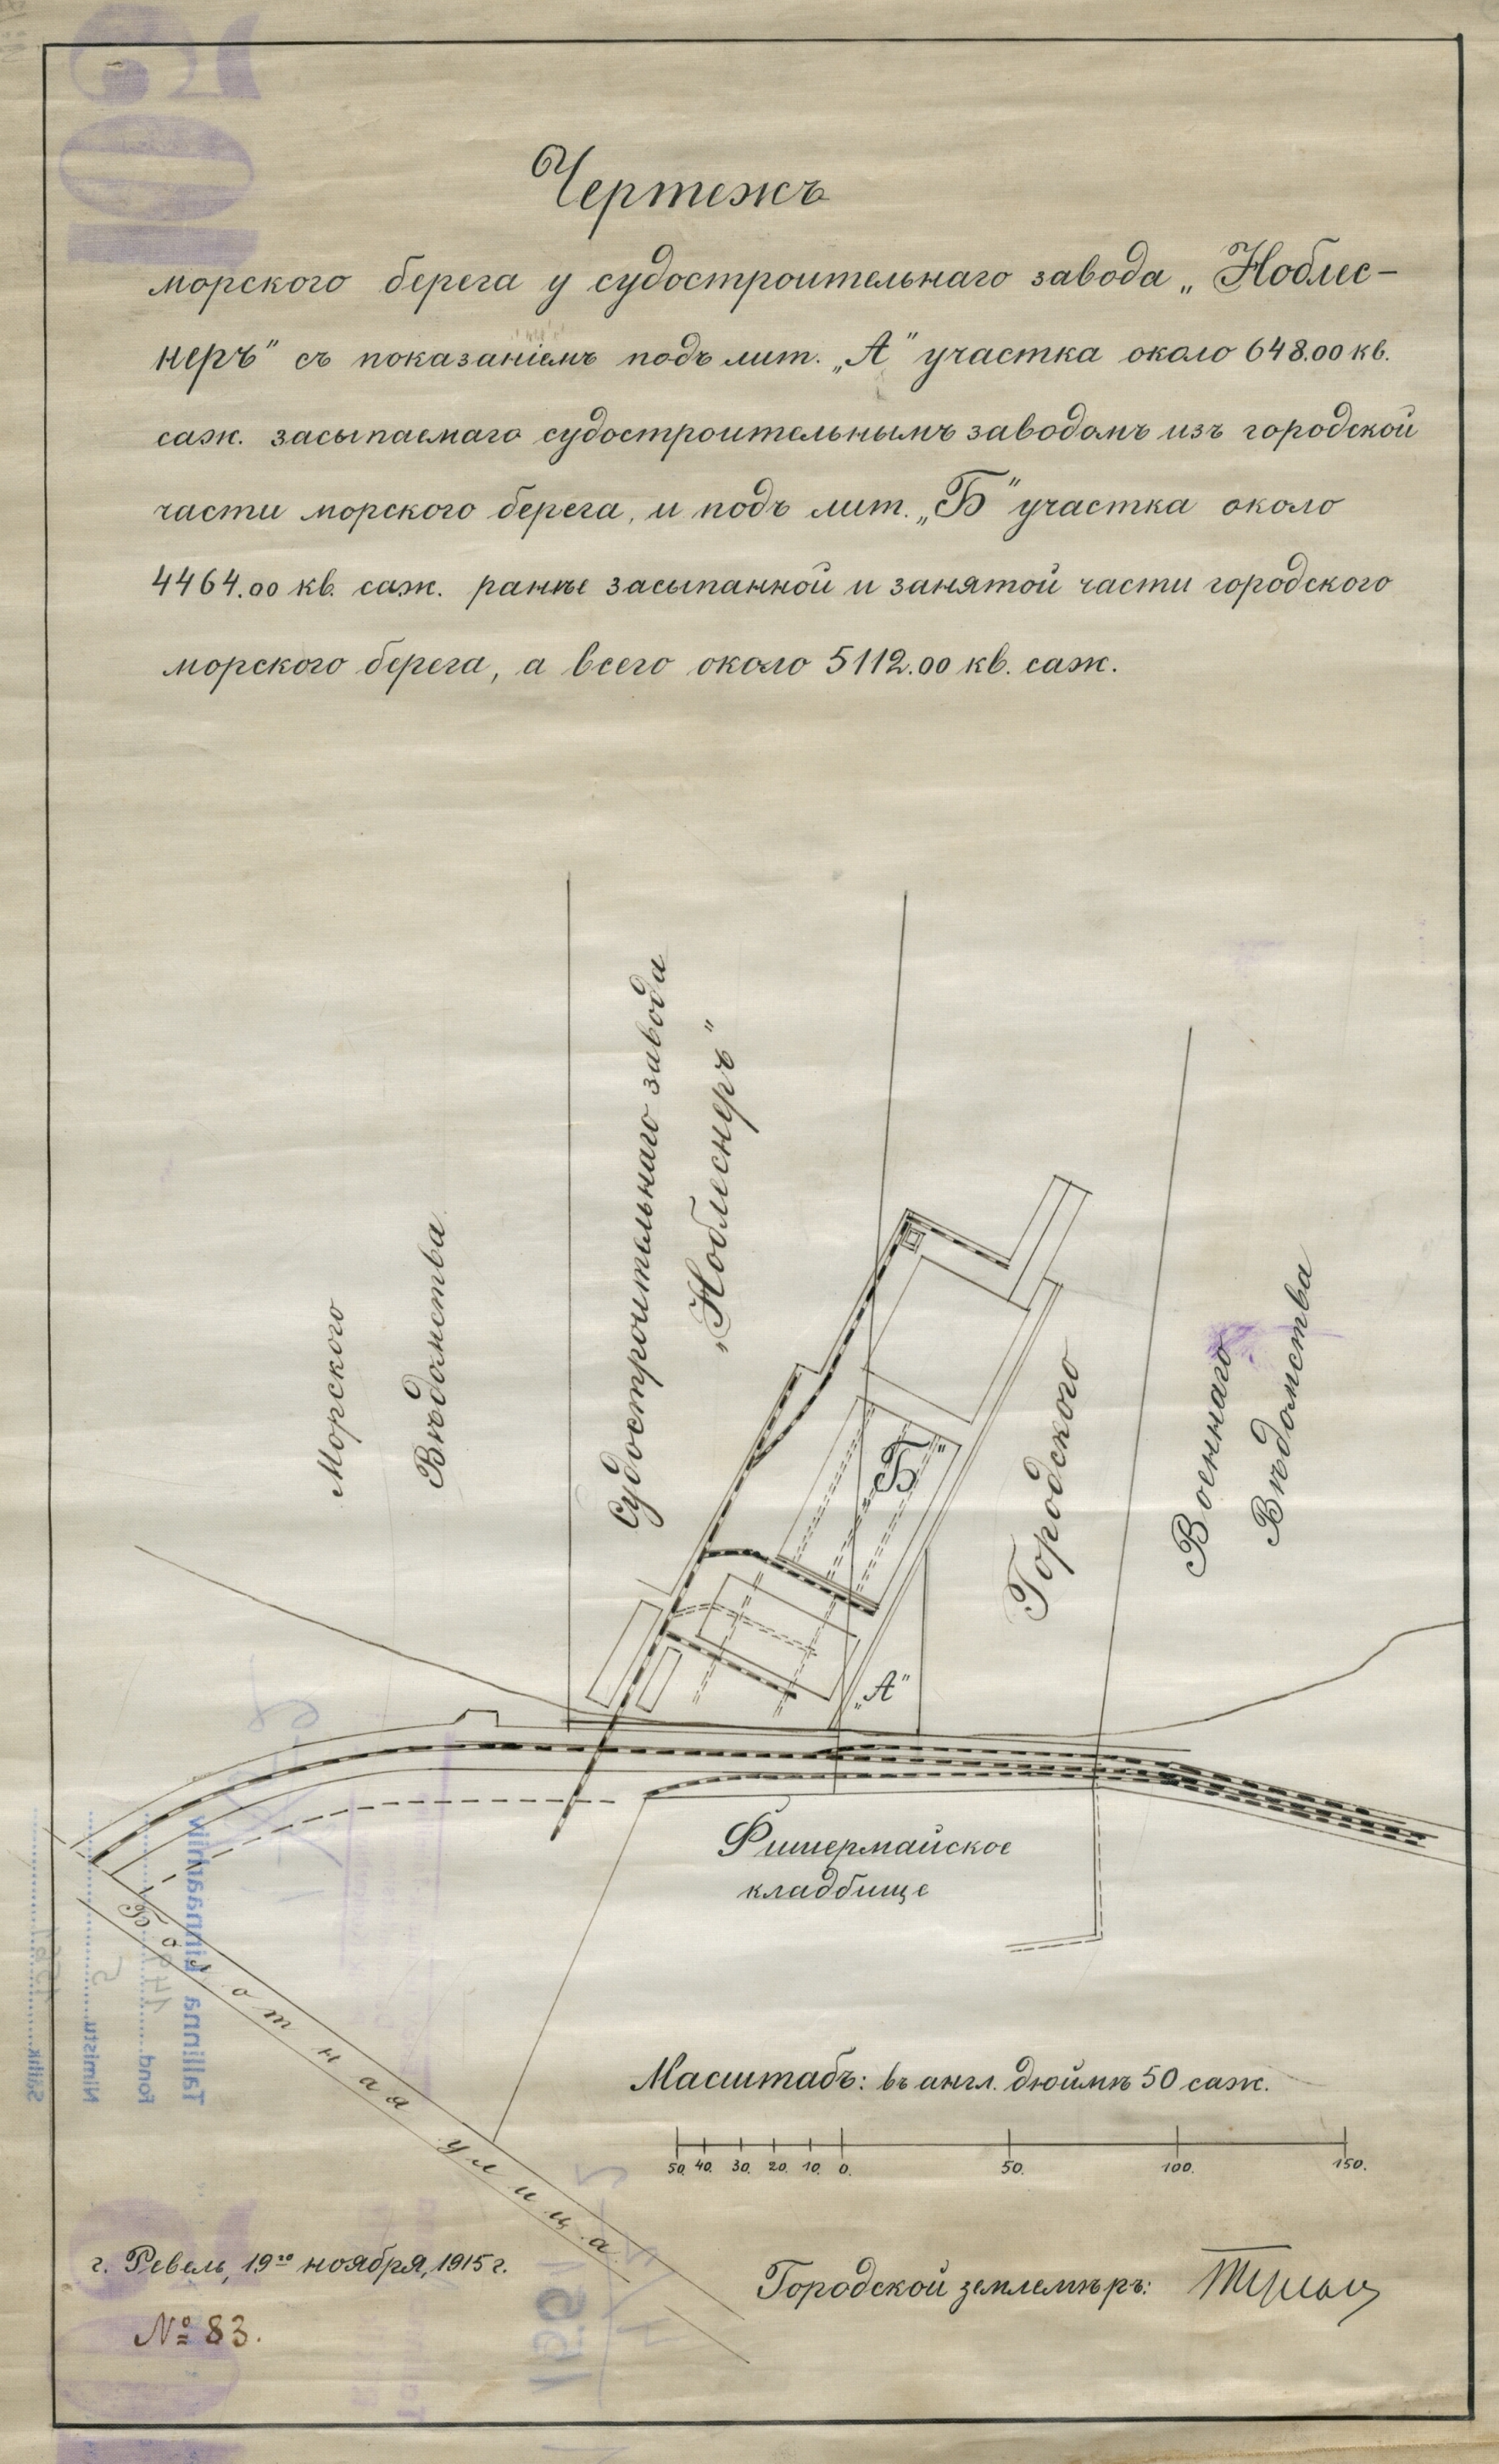 Чертежъ
морского берега у судостроительнаго завода „Ноблес-
неръ" съ показаніемъ подъ лит. „А" участка около 648.00 кв.
саж. засыпаемаго судостроительнымъ заводомъ изъ городской
части морского берега, и подъ лит. „Б" участка около
4464.00 кв. саж. ранѣе засыпанной и занятой части городского
морского берега, а всего около 5112.00 кв. саж.
Морского
Вѣдомства
Судостроительнаго завода
„Ноблеснеръ"
„Б"
Городского
Военнаго
Вѣдомства
„А"
Фишермайское
кладбище
Болотная улица
Масштабъ: въ англ. дюймѣ 50 саж.
50. 40. 30. 20. 10. 0. 50. 100. 150.
г. Ревель, 19го ноября, 1915 г.
Городской землемѣръ:
№ 83.
Tallinna Linnaarhiiv
Fond
Nimistu 5
Säilik